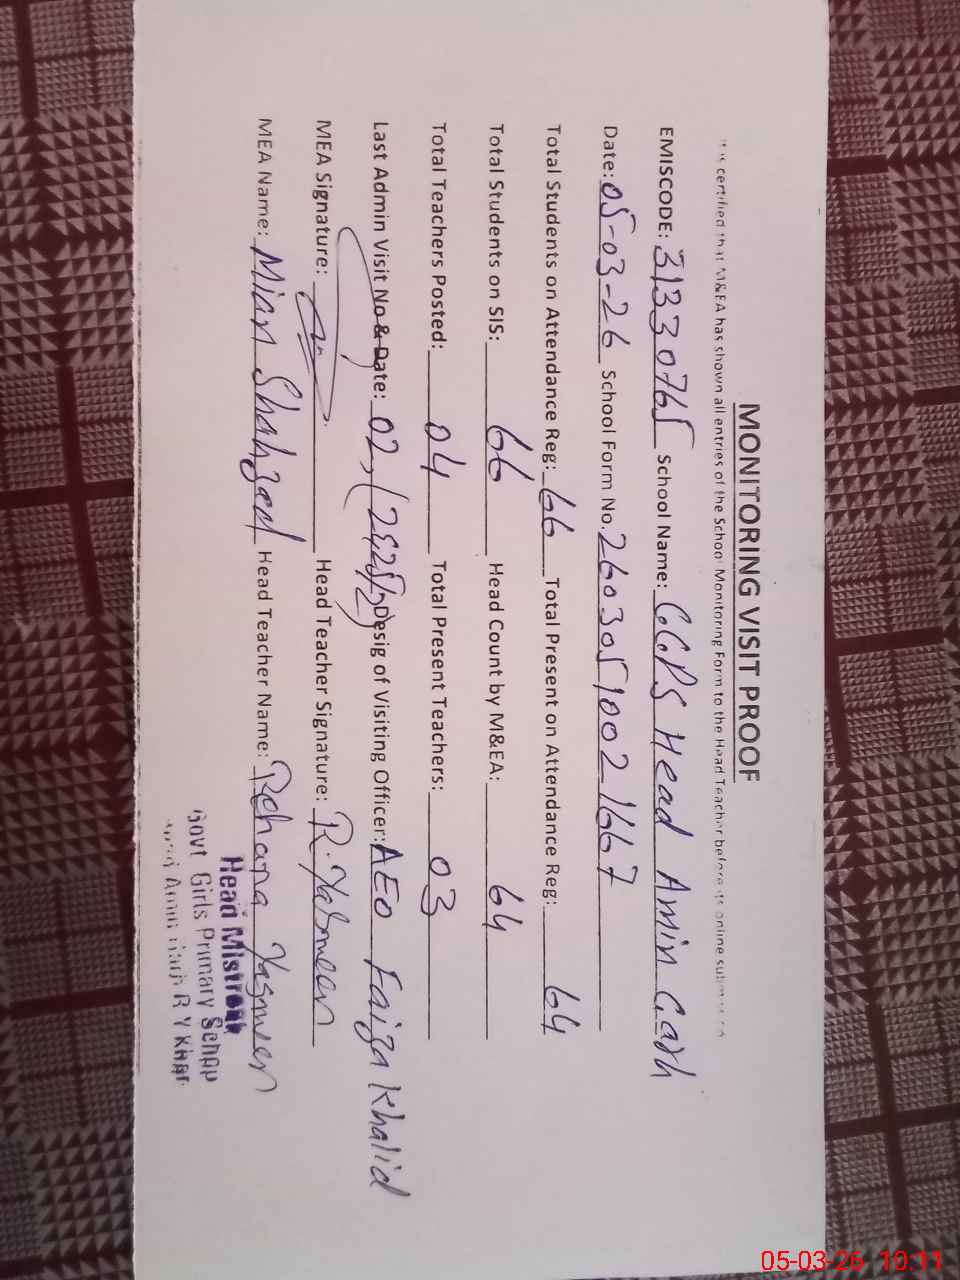 MONITORING VISIT PROOF
It is certified that M&EA has shown all entries of the School Monitoring Form to the Head Teacher before its online submission
EMISCODE: 31330765 School Name: GGPS Head Amin Garh
Date: 05-03-26 School Form No. 26030510021667
Total Students on Attendance Reg: 66 Total Present on Attendance Reg: 64
Total Students on SIS: 66 Head Count by M&EA: 64
Total Teachers Posted: 04 Total Present Teachers: 03
Last Admin Visit No & Date: 02, Desig of Visiting Officer: AEO Faiza Khalid
MEA Signature: Head Teacher Signature: R. Yasmeen
MEA Name: Mian Shahzad Head Teacher Name: Rehana Yasmeen
Head Mistress
Govt Girls Primary Schoo
R Y Khan
05-03-26 10:11